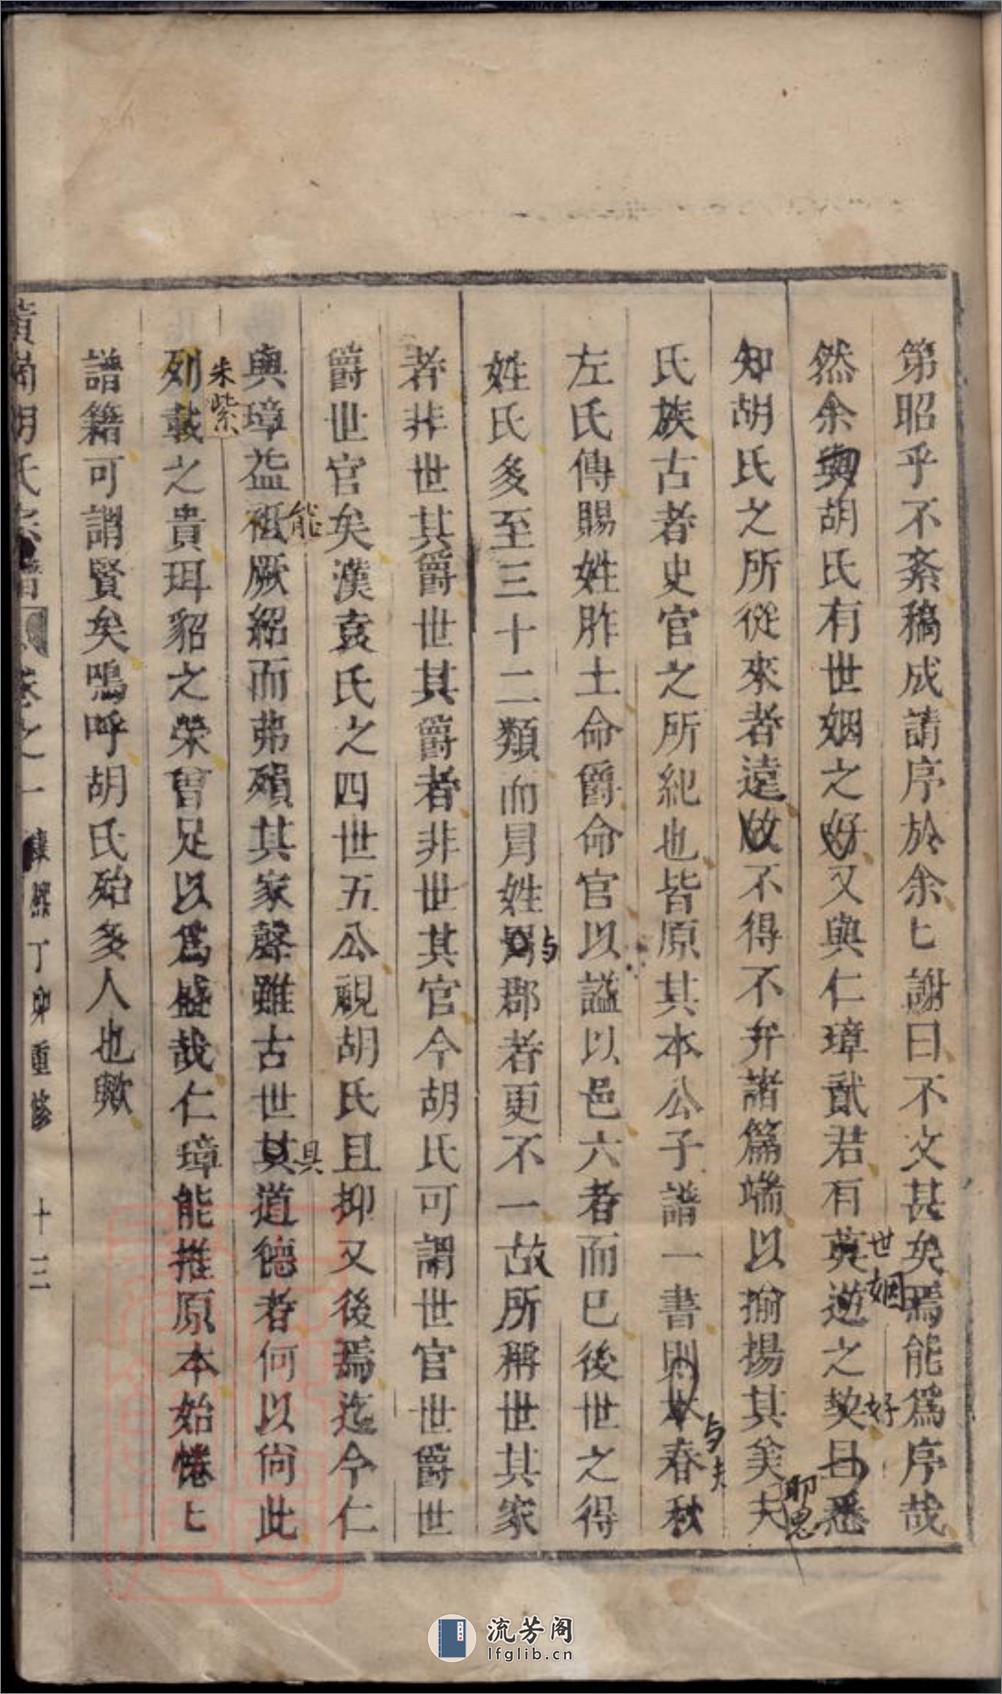 第昭乎不紊稿成請序於余匕謝曰不文甚矣焉能爲序哉
然余與胡氏有世姻之好又與仁璋貳君有英遊之契且悉
世姻
好
知胡氏之所從來者遠故不得不弁諸篇端以揄揚其美夫
耶思
氏族古者史官之所紀也皆原其本公子譜一書則本春秋
与夫
左氏傳賜姓胙土命爵命官以謚以邑六者而已後世之得
姓氏多至三十二類而冐姓易郡者更不一故所稱世其家
与
者非世其爵世其爵者非世其官今胡氏可謂世官世爵世
爵世官矣漢袁氏之四世五公視胡氏且抑又後焉迄今仁
與璋益祗厥紹而弗殞其家聲雖古世其道德者何以尙此
能
具
列載之貴珥貂之榮曾足以爲盛哉仁璋能推原本始惓匕
朱紫
譜籍可謂賢矣嗚呼胡氏殆多人也歟
黃岡胡氏宗譜 卷之一 丁卯重修 十三
流芳阁
lfglib.cn